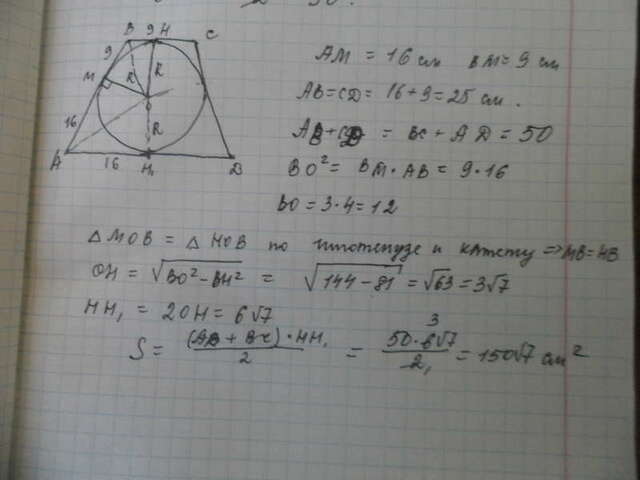 2 50.
B 9 H C
9
M R R
16 R
A 16 H₁ D
AM = 16 см BM = 9 см
AB = CD = 16 + 9 = 25 см.
AB + CD = BC + AD = 50
BO² = BM · AB = 9 · 16
BO = 3 · 4 = 12
△MOB = △HOB по гипотенузе и катету ⇒ MB = HB
OH = √(BO² − BH²) = √(144 − 81) = √63 = 3√7
HH₁ = 2OH = 6√7
S = (AD + BC) · HH₁ / 2 = 50 · 6√7 / 2 = 150√7 см²
3 1